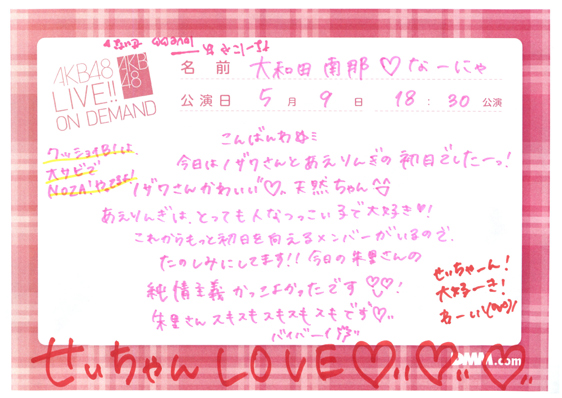 AKB48
LIVE!!
ON DEMAND
AKB
48
名前 大和田南那♡なーにゃ
公演日 5月9日 18:30公演
クッションBLは
大サビで
NOZA!やってるよ!
こんばんわ
今日はノザワさんとあえりんぎの初日でしたーっ!
ノザワさんかわいい♡天然ちゃん
あえりんぎは、とっても人なつっこい子で大好き♥!
これからもっと初日を向えるメンバーがいるので、
たのしみにしてます!!今日の朱里さんの
純情主義かっこよかったです♡♡!
朱里さんスキスキスキスキスキです♡
バイバーイ
せいちゃーん!
大好ーき!
せいちゃんLOVE♡♡♡
DMM.com